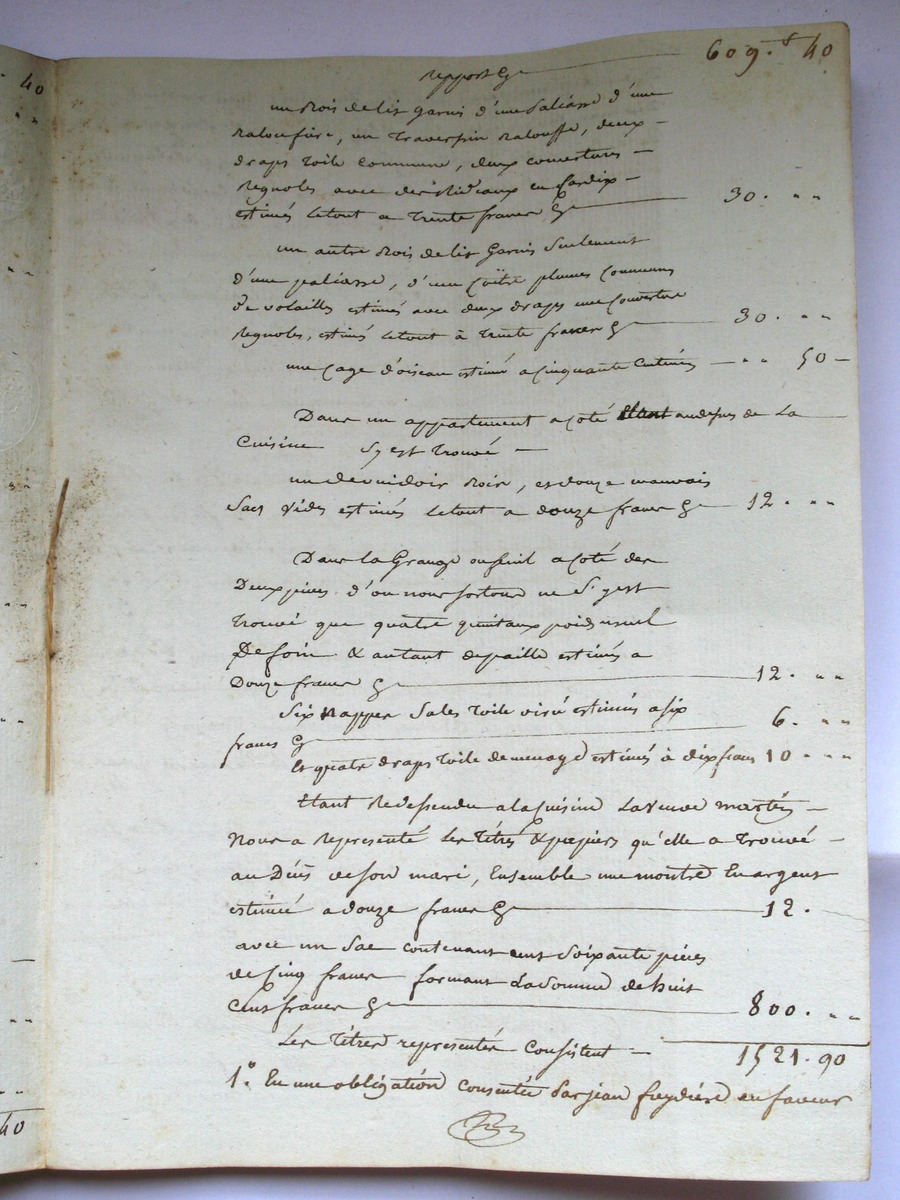 40
report 609.f 40
un bois de lit garni d'une paliasse d'une
balouffière, un traversin balouffe, deux
draps toile commune, deux couvertures
regnoles avec des rideaux en
estimés le tout a trente francs 30. " "
un autre bois de lit garnis seulement
d'une paliasse, d'un coitre plumes communes
de volailles estimés avec deux draps une couverture
regnoles, estimés le tout à trente francs 30. " "
une cage d'oiseau estimé a cinquante centimes — " " 50 —
Dans un appartement a coté audessus de La
Cuisine s'y est trouvé —
un devidoir noir, et douze mauvais
sacs vides estimés le tout a douze francs 12. " "
Dans la Grange ou fenil a coté des
Deux pièces d'ou nous sortons ne s'y est
trouvé que quatre quintaux poids
De foin & autant de paille estimés a
Douze francs 12. " "
Six nappes sales toile estimés a six
francs 6. " "
Et quatre draps toile de menage estimés à dix francs 10 " "
Etant Redessendu a la cuisine La veuve martin —
Nous a représenté Les titres & papiers qu'elle a trouvé —
au Décès de son mari, Ensemble une montre En argent
estimée a douze francs 12.
avec un sac contenant cent soixante pièces
de cinq francs formant La somme de huit
Cent francs 800. " "
Les titres representés consistent — 1521.90
1.° En une obligation consentée par jean freydière en faveur
40